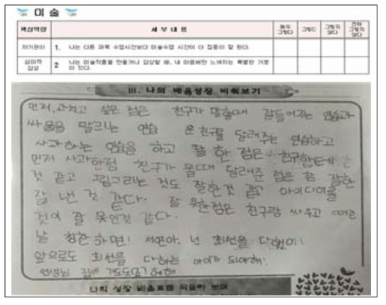 미술
핵심역량 세부내용 매우 그렇다 그렇다 그렇지 않다 전혀 그렇지 않다
자기관리 1. 나는 다른 과목 수업시간보다 미술수업 시간이 더 집중이 잘 된다.
심미적 감성 2 나는 미술작품을 만들거나 감상할 때, 내 마음에만 느껴지는 특별한 기분이 있다.
III. 나의 배움성장 되돌아보기
먼저, 고치고 싶은 점은 친구가 말할때 끼어들기는 연습과
싸움을 말리는 연습 운 친구를 달래주는 연습하고
사과하는 연습을 하고 잘 한 점은 친구한테
먼저 사과한점 친구가 울때 달래주 점은 참 잘한
것 같고 것도 잘한것 같고 아이디어를
잘 낸 것 같다. 잘 못한점은 친구랑 싸우고 때린
것이 잘 못한것 같다.
날 칭찬 하면! 서연아, 넌 최선을 다했어!
앞으로도 최선을 다하는 아이가 되어야해.
선생님
나의 성장